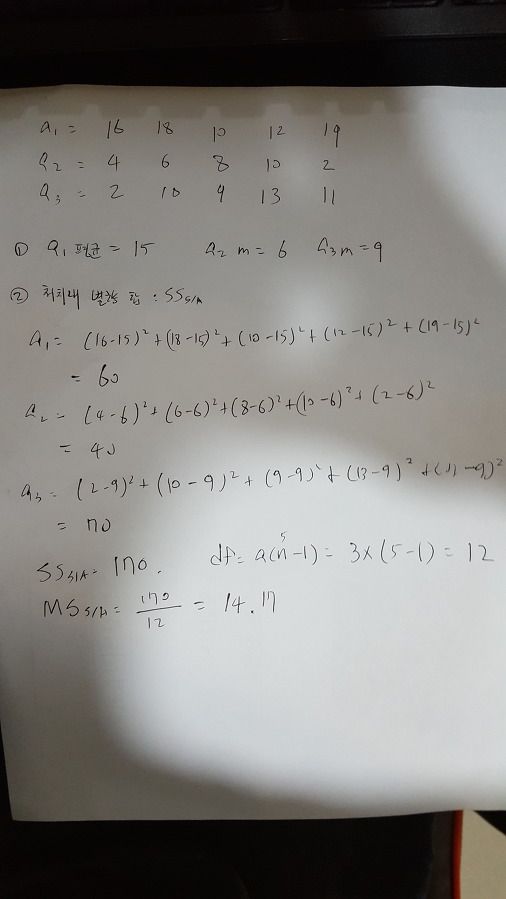 a₁ = 16 18 10 12 19
a₂ = 4 6 8 10 2
a₃ = 2 10 9 13 11
① a₁ 평균 = 15 a₂ m = 6 a₃ m = 9
② 처치내 변량 합 : SS S/A
a₁ = (16-15)² + (18-15)² + (10-15)² + (12-15)² + (19-15)²
= 60
a₂ = (4-6)² + (6-6)² + (8-6)² + (10-6)² + (2-6)²
= 40
a₃ = (2-9)² + (10-9)² + (9-9)² + (13-9)² + (11-9)²
= 70
SS S/A = 170. df = a(n-1) = 3×(5-1) = 12
5
MS S/A = 170/12 = 14.17